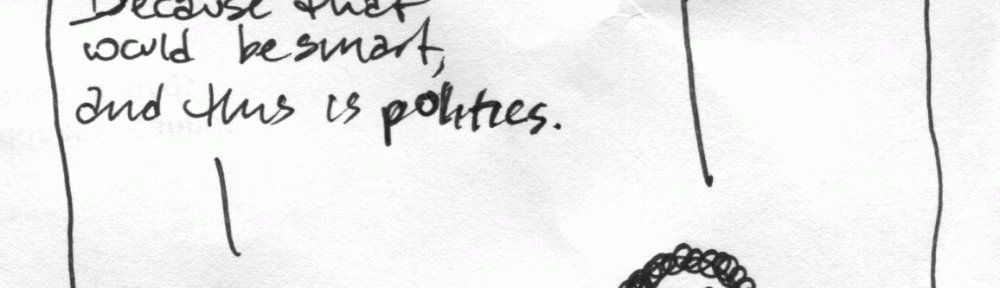 Because that
would be smart,
and this is politics.